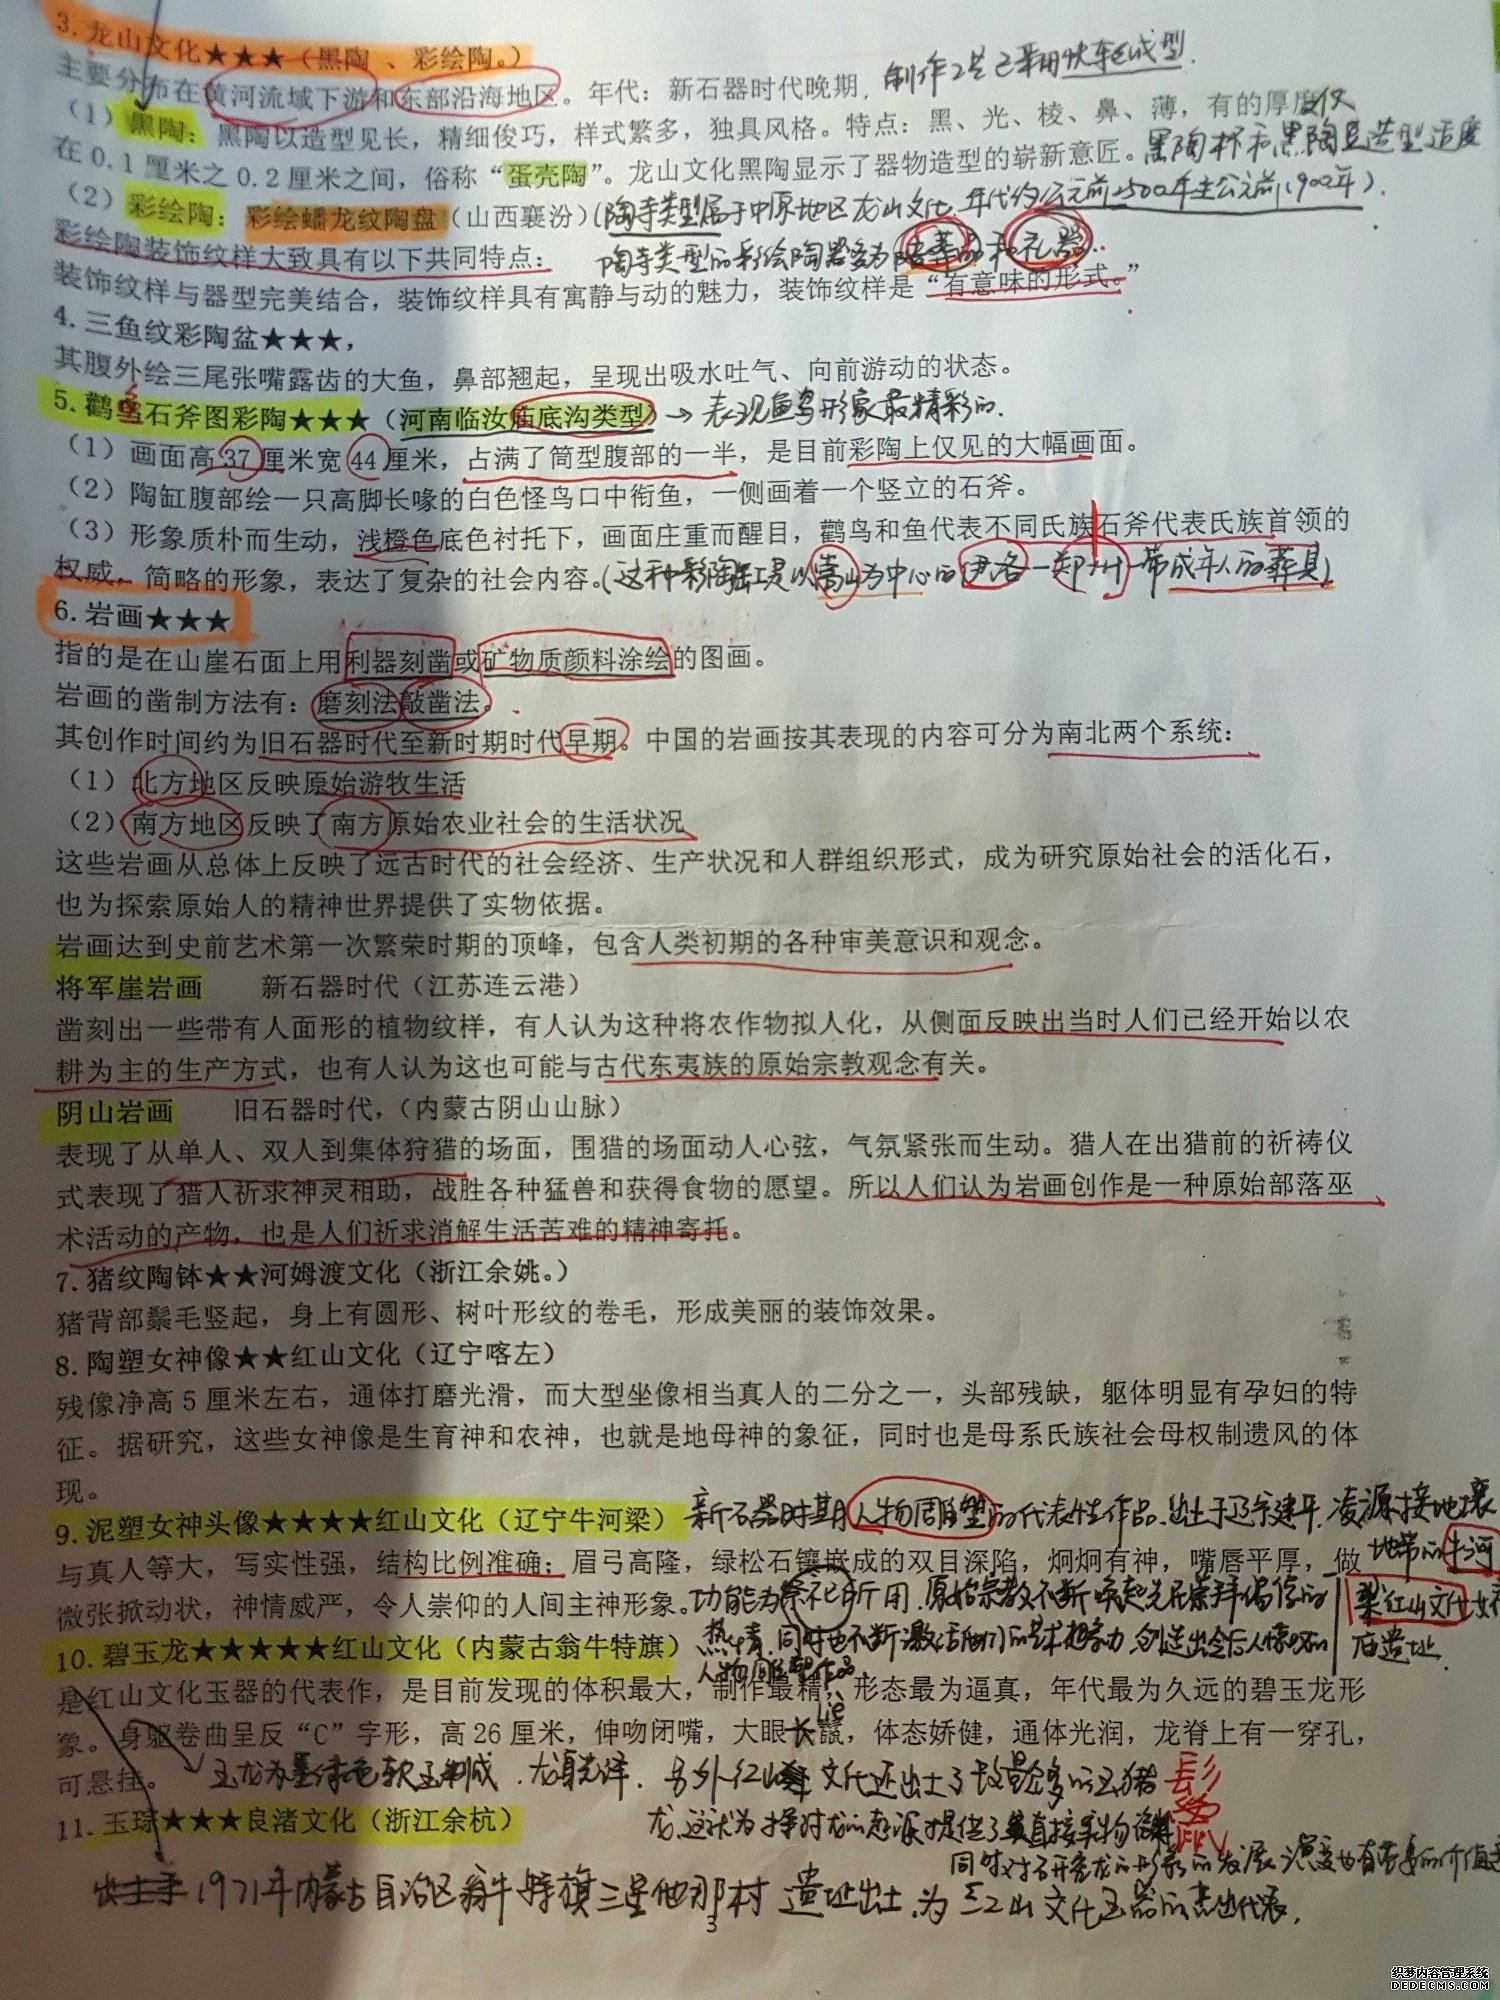 3. 龙山文化★★★（黑陶 、彩绘陶。）
主要分布在黄河流域下游和东部沿海地区。年代：新石器时代晚期.
制作工艺已采用快轮成型.
（1）黑陶：黑陶以造型见长，精细俊巧，样式繁多，独具风格。特点：黑、光、棱、鼻、薄，有的厚度仅
在 0.1 厘米之 0.2 厘米之间，俗称“蛋壳陶”。龙山文化黑陶显示了器物造型的崭新意匠。
黑陶杯和黑陶豆造型适度
（2）彩绘陶：彩绘蟠龙纹陶盘（山西襄汾）
(陶寺类型属于中原地区龙山文化.年代约公元前2500年至公元前1900年).
彩绘陶装饰纹样大致具有以下共同特点：
陶寺类型的彩绘陶器多为随葬品和礼器.
装饰纹样与器型完美结合，装饰纹样具有寓静与动的魅力，装饰纹样是“有意味的形式。”
4. 三鱼纹彩陶盆★★★，
其腹外绘三尾张嘴露齿的大鱼，鼻部翘起，呈现出吸水吐气、向前游动的状态。
5. 鹳鸟石斧图彩陶★★★（河南临汝庙底沟类型）→表现鱼鸟形象最精彩的.
（1）画面高 37 厘米宽 44 厘米，占满了筒型腹部的一半，是目前彩陶上仅见的大幅画面。
（2）陶缸腹部绘一只高脚长喙的白色怪鸟口中衔鱼，一侧画着一个竖立的石斧。
（3）形象质朴而生动，浅橙色底色衬托下，画面庄重而醒目，鹳鸟和鱼代表不同氏族石斧代表氏族首领的
权威，简略的形象，表达了复杂的社会内容。(这种彩陶缸是以嵩山为中心的伊洛—郑州一带成年人的葬具)
6. 岩画★★★
指的是在山崖石面上用利器刻凿或矿物质颜料涂绘的图画。
岩画的凿制方法有：磨刻法敲凿法。
其创作时间约为旧石器时代至新时期时代早期。中国的岩画按其表现的内容可分为南北两个系统：
（1）北方地区反映原始游牧生活
（2）南方地区反映了南方原始农业社会的生活状况
这些岩画从总体上反映了远古时代的社会经济、生产状况和人群组织形式，成为研究原始社会的活化石，
也为探索原始人的精神世界提供了实物依据。
岩画达到史前艺术第一次繁荣时期的顶峰，包含人类初期的各种审美意识和观念。
将军崖岩画 新石器时代（江苏连云港）
凿刻出一些带有人面形的植物纹样，有人认为这种将农作物拟人化，从侧面反映出当时人们已经开始以农
耕为主的生产方式，也有人认为这也可能与古代东夷族的原始宗教观念有关。
阴山岩画 旧石器时代，（内蒙古阴山山脉）
表现了从单人、双人到集体狩猎的场面，围猎的场面动人心弦，气氛紧张而生动。猎人在出猎前的祈祷仪
式表现了猎人祈求神灵相助，战胜各种猛兽和获得食物的愿望。所以人们认为岩画创作是一种原始部落巫
术活动的产物，也是人们祈求消解生活苦难的精神寄托。
7. 猪纹陶钵★★河姆渡文化（浙江余姚。）
猪背部鬃毛竖起，身上有圆形、树叶形纹的卷毛，形成美丽的装饰效果。
8. 陶塑女神像★★红山文化（辽宁喀左）
残像净高 5 厘米左右，通体打磨光滑，而大型坐像相当真人的二分之一，头部残缺，躯体明显有孕妇的特
征。据研究，这些女神像是生育神和农神，也就是地母神的象征，同时也是母系氏族社会母权制遗风的体
现。
9. 泥塑女神头像★★★★红山文化（辽宁牛河梁）
新石器时期人物雕塑的代表性作品.出土于辽宁建平.凌源接地壤
地带的牛河
梁红山文化女神
庙遗址.
与真人等大，写实性强，结构比例准确；眉弓高隆，绿松石镶嵌成的双目深陷，炯炯有神，嘴唇平厚，做
微张掀动状，神情威严，令人崇仰的人间主神形象。
功能为祭祀所用.原始宗教不断唤起先民崇拜偶像的
热情.同时也不断激活他们的艺术想象力.创造出令后人惊叹的
人物雕塑作品
10. 碧玉龙★★★★★红山文化（内蒙古翁牛特旗）
是红山文化玉器的代表作，是目前发现的体积最大，制作最精，形态最为逼真，年代最为久远的碧玉龙形
象。身躯卷曲呈反“C”字形，高 26 厘米，伸吻闭嘴，大眼长鬣，体态娇健，通体光润，龙脊上有一穿孔，
liè
可悬挂。
玉龙为墨绿色软玉制成.龙身光泽.另外红山文化还出土了数量众多的玉猪
龙.这就为探讨龙的起源提供了最直接实物
同时对研究龙的形象的发展演变也有重要的价值
11. 玉琮★★★良渚文化（浙江余杭）
出土于1971年内蒙古自治区翁牛特旗三星他那村遗址出土.为红山文化玉器的杰出代表.
3
织梦内容管理系统
DEDECMS.COM